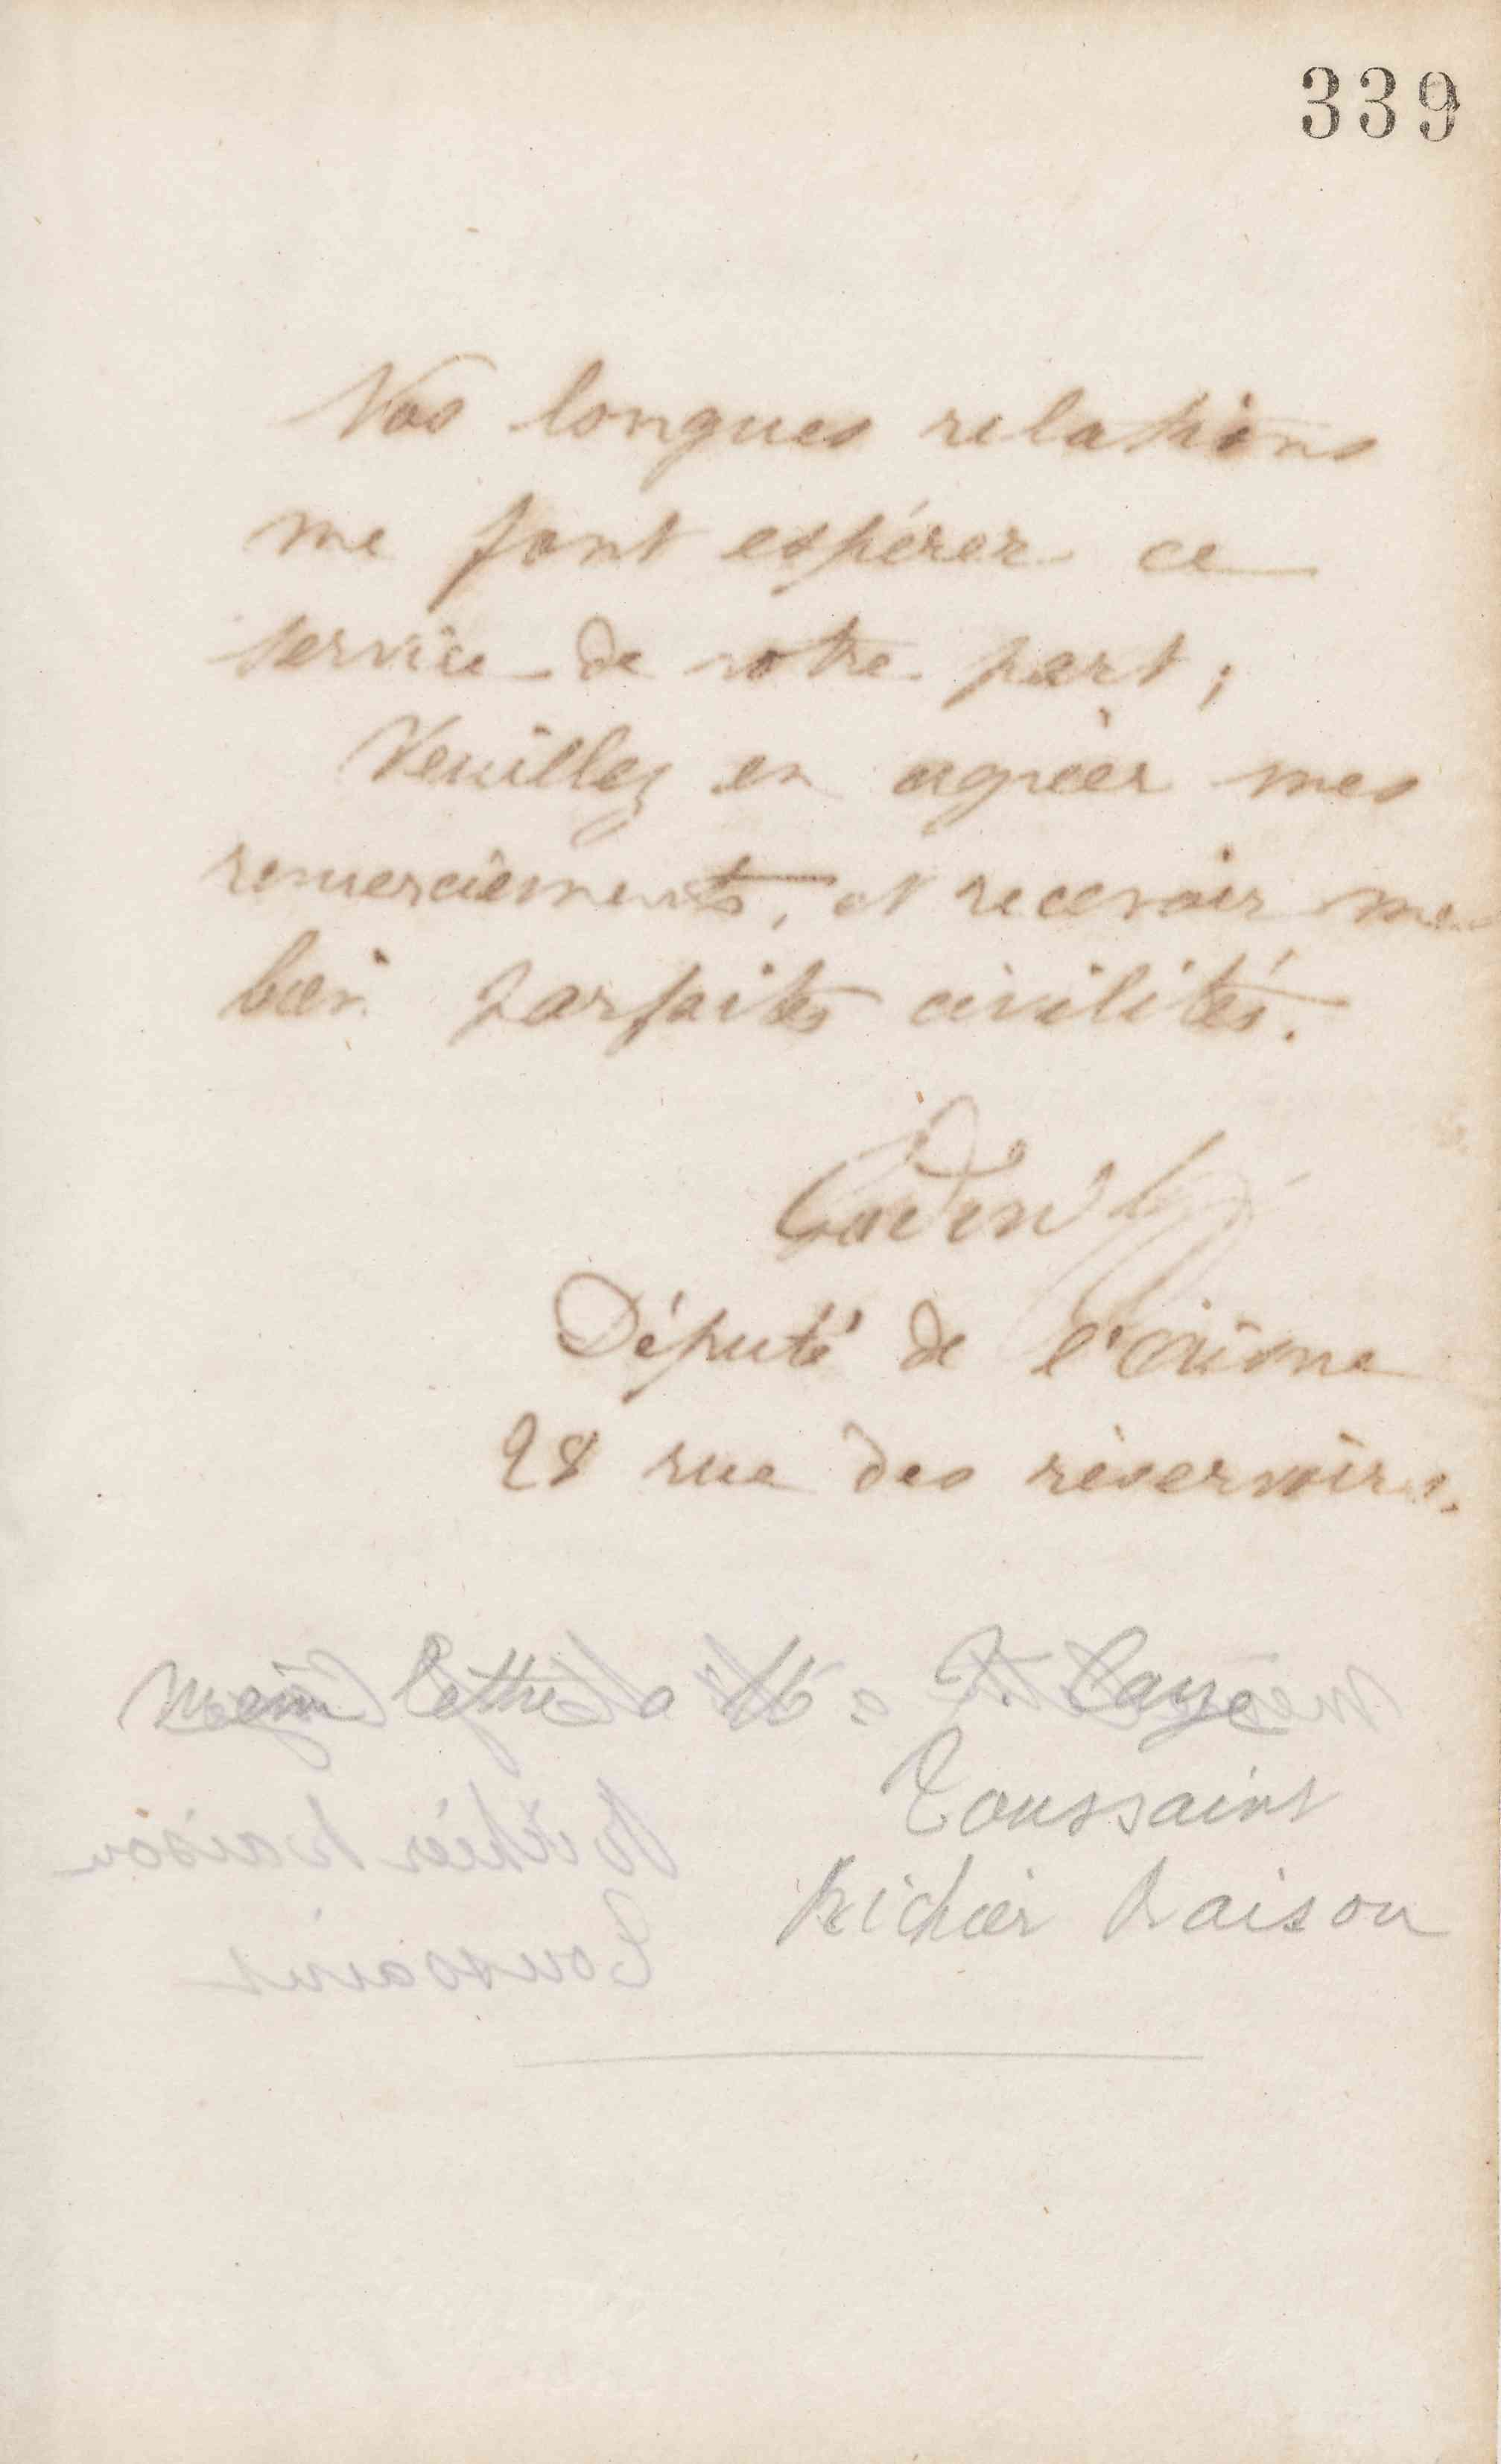 339
Nos longues relations
me font espérer ce
service de votre part;
Veuillez en agréer mes
remerciements, et recevoir mes
bien parfaites civilités.
Godin
Député de l'Aisne
28 rue des réservoirs.
Même lettre à M
Toussaint
Richier Raison